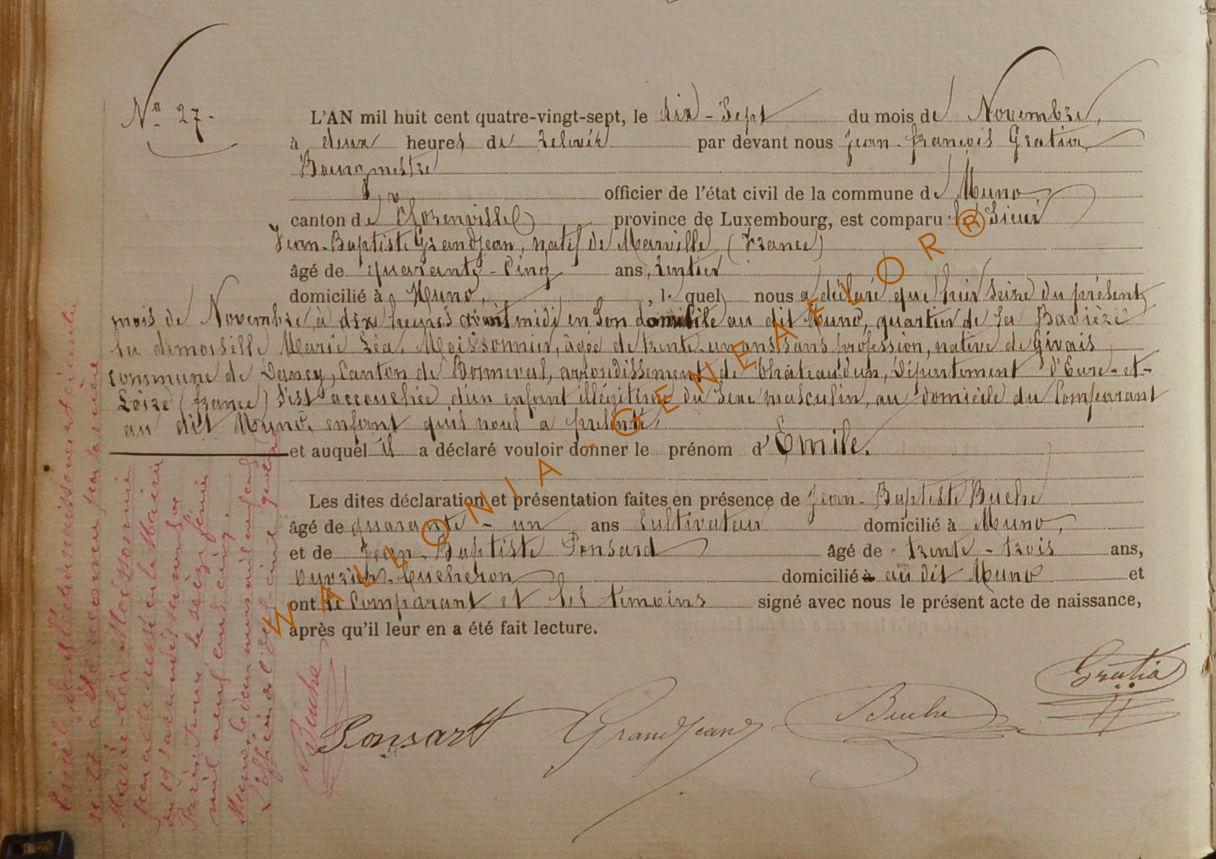 Nº 27.
L'AN mil huit cent quatre-vingt-sept, le dix-sept du mois de Novembre,
à deux heures de relevée par devant nous Jean-François Gratia,
Bourgmestre
officier de l'état civil de la commune de Muno
canton de Florenville province de Luxembourg, est comparu le Sieur
Jean-Baptiste Grandjean, natif de Marville (France)
âgé de quarante-cinq ans, rentier
domicilié à Muno, , lequel nous a déclaré que hier seize du présent
mois de Novembre à dix heures avant midi en son domicile au dit Muno, quartier de la
la demoiselle Marie Léa Moissonnier, âgée de trente un ans sans profession, native de
commune de Dancy, Canton de Bonneval, arrondissement de Châteaudun, Département d'Eure-et-
Loire (France) s'est accouchée d'un enfant illégitime du sexe masculin, au domicile du Comparant
au dit Muno, enfant qu'il nous a présenté,
et auquel il a déclaré vouloir donner le prénom d'Emile.
Les dites déclaration et présentation faites en présence de Jean-Baptiste Buche
âgé de quarante-un ans Cultivateur domicilié à Muno,
et de Jean-Baptiste Ponsard âgé de trente-trois ans,
ouvrier-bucheron domicilié à au dit Muno et
ont le Comparant et les témoins signé avec nous le présent acte de naissance,
après qu'il leur en a été fait lecture.
Emile, dont l'acte de naissance est ci-contre
a été reconnu par la mère
Marie-Léa Moissonnier
par acte dressé en la Mairie
du 19e arrondissement de
Paris, le seize février
mil neuf cent cinq
Muno, le
L'officier de l'état civil,
Buche
Ponsart Grandjean Buche Gratia
WALLONIA - GENEAFLOR®